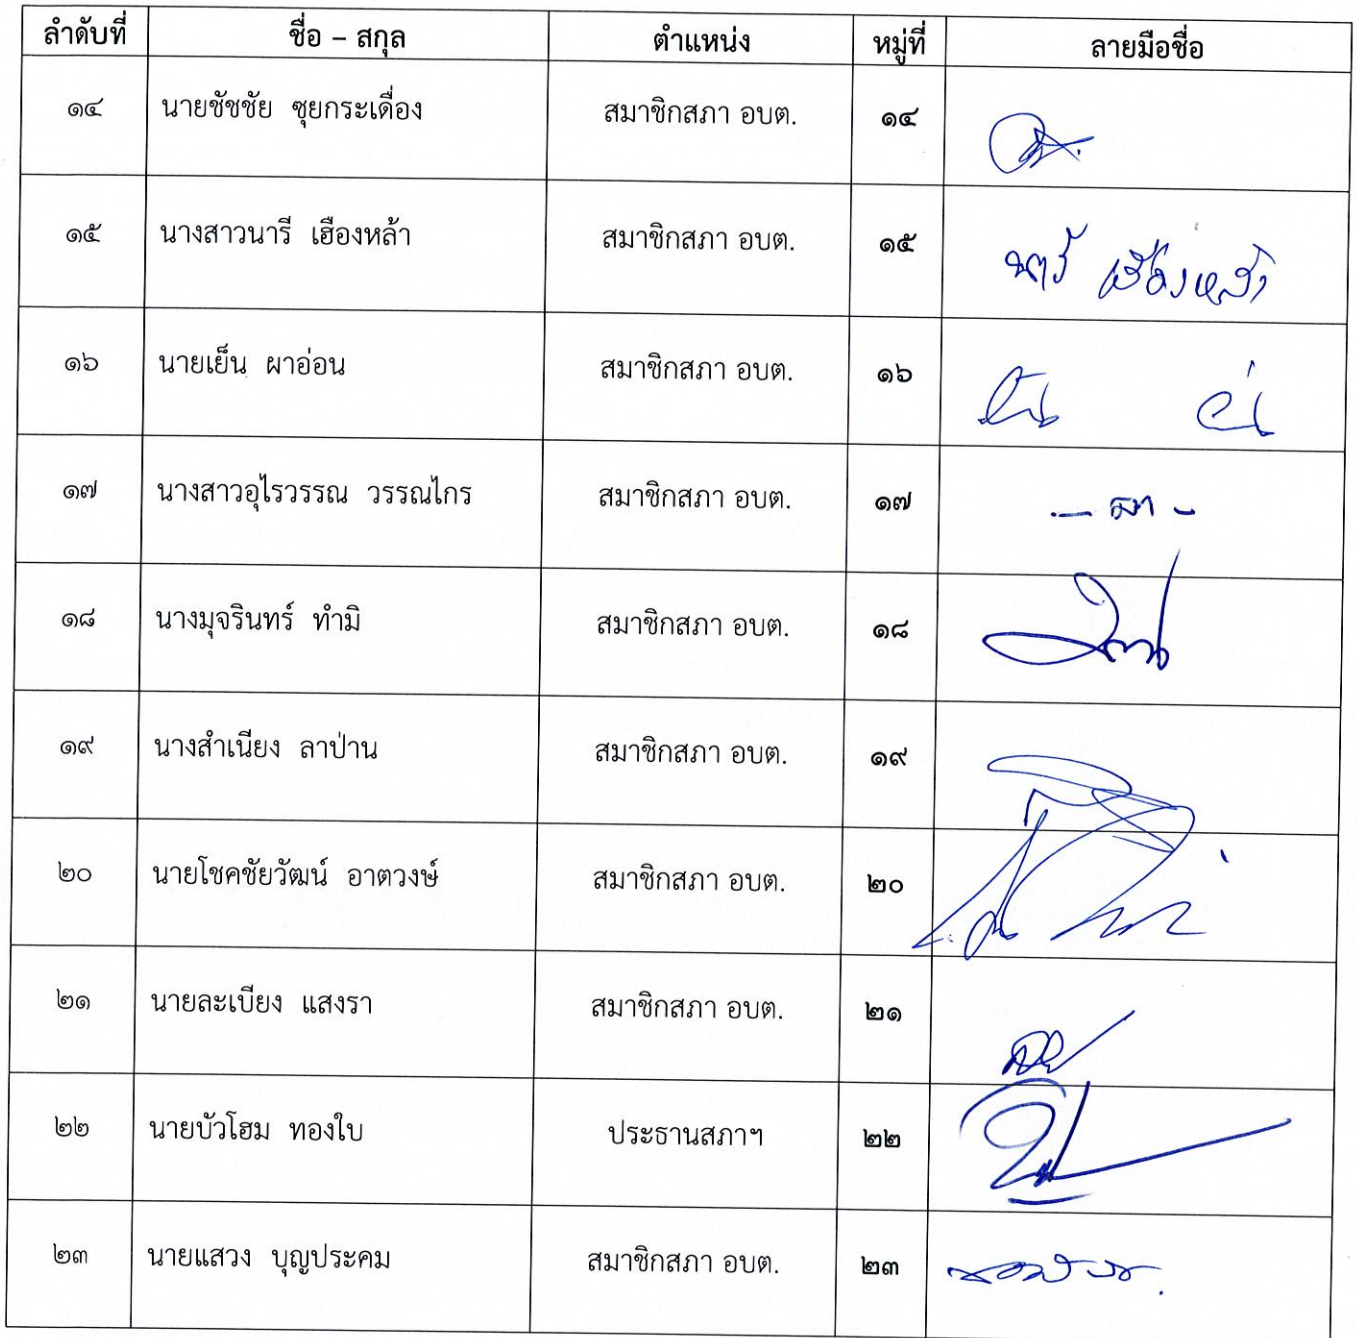 ลำดับที่ ชื่อ – สกุล ตำแหน่ง หมู่ที่ ลายมือชื่อ
๑๔ นายชัชชัย ซุยกระเดื่อง สมาชิกสภา อบต. ๑๔
๑๕ นางสาวนารี เฮืองหล้า สมาชิกสภา อบต. ๑๕ นารี เฮืองหล้า
๑๖ นายเย็น ผาอ่อน สมาชิกสภา อบต. ๑๖
๑๗ นางสาวอุไรวรรณ วรรณไกร สมาชิกสภา อบต. ๑๗ - ลา -
๑๘ นางมุจรินทร์ ทำมิ สมาชิกสภา อบต. ๑๘
๑๙ นางสำเนียง ลาป่าน สมาชิกสภา อบต. ๑๙
๒๐ นายโชคชัยวัฒน์ อาตวงษ์ สมาชิกสภา อบต. ๒๐
๒๑ นายละเบียง แสงรา สมาชิกสภา อบต. ๒๑
๒๒ นายบัวโฮม ทองใบ ประธานสภาฯ ๒๒
๒๓ นายแสวง บุญประคม สมาชิกสภา อบต. ๒๓